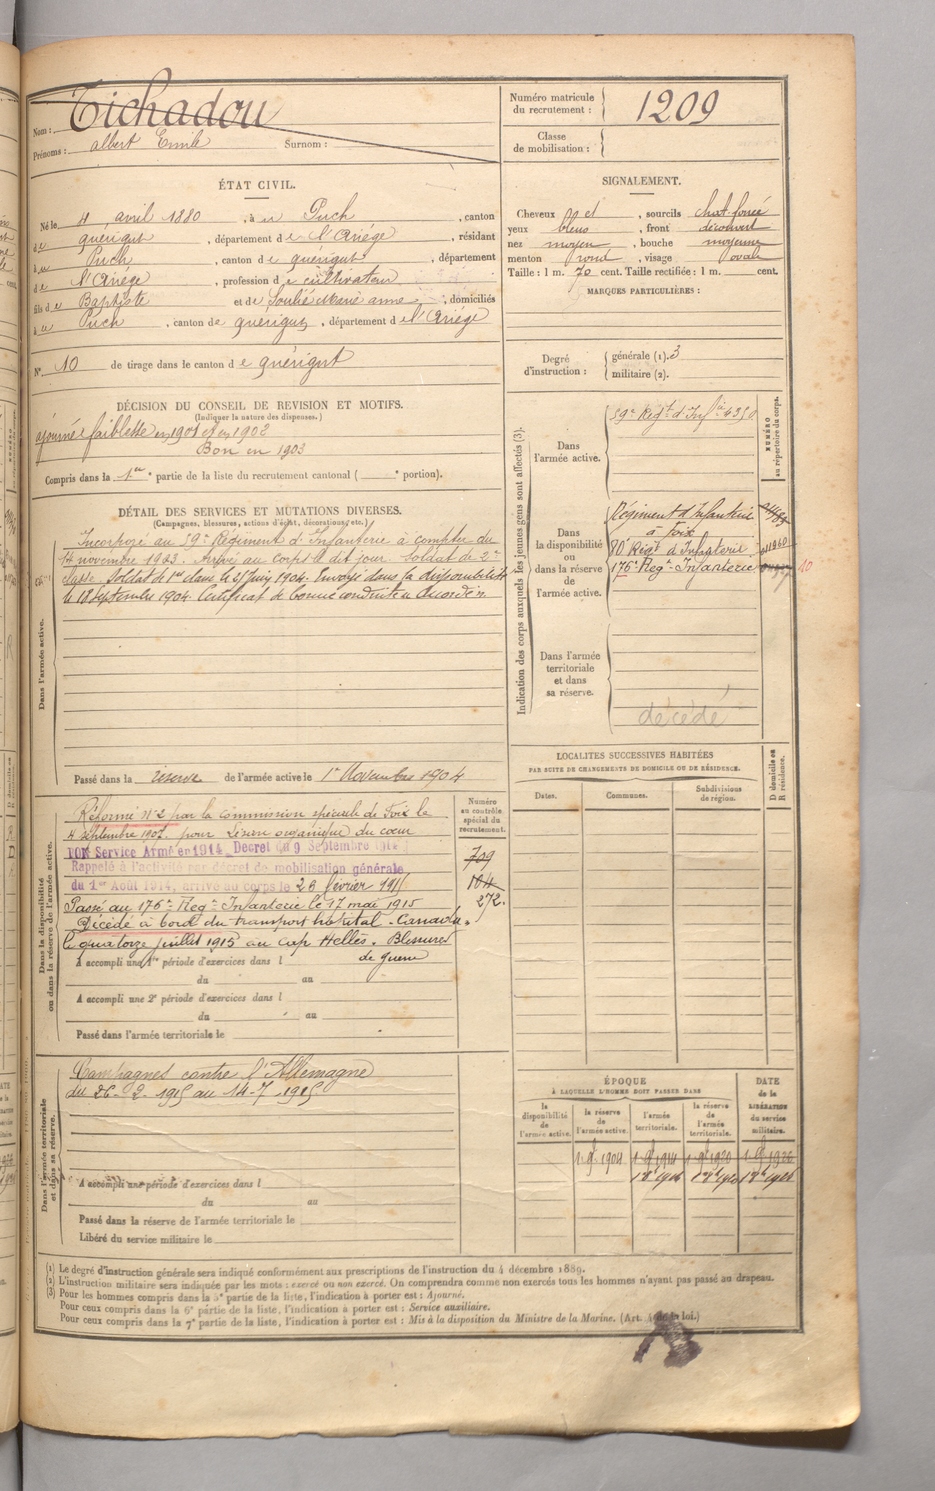 Nom : Tichadou
Prénoms : albert Emile Surnom :
Numéro matricule du recrutement : 1209
Classe de mobilisation :
ÉTAT CIVIL.
Né le 4 avril 1880, à Puch, canton
de quérigut, département de l'Ariége, résidant
à Puch, canton de quérigut, département
de l'Ariége, profession de cultivateur
fils de Baptiste et de Soulié Marie anne, domiciliés
à Puch, canton de quérigut, département de l'Ariége
N° 10 de tirage dans le canton de quérigut
SIGNALEMENT.
Cheveux et, sourcils chat. foncé
yeux bleus, front découvert
nez moyen, bouche moyenne
menton rond, visage ovale
Taille : 1 m. 70 cent. Taille rectifiée : 1 m. cent.
MARQUES PARTICULIÈRES :
Degré d'instruction : générale (1). 3
militaire (2).
DÉCISION DU CONSEIL DE REVISION ET MOTIFS.
(Indiquer la nature des dispenses.)
ajourné faiblesse en 1901 et en 1902
Bon en 1903
Compris dans la 1ere partie de la liste du recrutement cantonal ( e portion).
DÉTAIL DES SERVICES ET MUTATIONS DIVERSES.
(Campagnes, blessures, actions d'éclat, décorations, etc.)
Dans l'armée active.
Incorporé au 59e Régiment d'Infanterie à compter du
14 novembre 1903. Arrivé au corps le dit jour. Soldat de 2e
classe. Soldat de 1ere classe le 25 juin 1904. Envoyé dans la disponibilité
le 18 septembre 1904. Certificat de bonne conduite accordé.
Passé dans la réserve de l'armée active le 1er Novembre 1904
Indication des corps auxquels les jeunes gens sont affectés (3).
NUMÉRO au répertoire du corps.
Dans l'armée active.
59e Régt d'Infie 4350
Dans la disponibilité ou dans la réserve de l'armée active.
Régiment d'Infanterie
à Foix
80e Régt d'Infanterie
176e Regt Infanterie
10
Dans l'armée territoriale et dans sa réserve.
décédé
LOCALITÉS SUCCESSIVES HABITÉES
PAR SUITE DE CHANGEMENTS DE DOMICILE OU DE RÉSIDENCE.
D domicile ou R résidence.
Dates. Communes. Subdivisions de région.
Dans la disponibilité ou dans la réserve de l'armée active.
Numéro au contrôle spécial du recrutement.
Réformé N° 2 par la commission spéciale de Foix le
4 septembre 1907. pour Lésion organique du cœur
BON Service Armé en 1914 Decret du 9 Septembre 1914
Rappelé à l'activité par décret de mobilisation générale
du 1er Août 1914, arrivé au corps le 26 février 1915
Passé au 176e Regt Infanterie le 17 mai 1915
Décédé à bord du transport hôpital "Canada"
le quatorze juillet 1915 au cap Hellès. Blessures
de guerre
709
104
272
A accompli une 1re période d'exercices dans l
du au
A accompli une 2e période d'exercices dans l
du au
Passé dans l'armée territoriale le
Dans l'armée territoriale et dans sa réserve.
Campagnes contre l'Allemagne
du 26-2-1915 au 14-7-1915
A accompli une période d'exercices dans l
du au
Passé dans la réserve de l'armée territoriale le
Libéré du service militaire le
ÉPOQUE
À LAQUELLE L'HOMME DOIT PASSER DANS
DATE de la LIBÉRATION du service militaire.
la disponibilité de l'armée active. la réserve de l'armée active. l'armée territoriale. la réserve de l'armée territoriale.
(1) Le degré d'instruction générale sera indiqué conformément aux prescriptions de l'instruction du 4 décembre 1889.
(2) L'instruction militaire sera indiquée par les mots : exercé ou non exercé. On comprendra comme non exercés tous les hommes n'ayant pas passé au drapeau.
(3) Pour les hommes compris dans la 5e partie de la liste, l'indication à porter est : Ajourné.
Pour ceux compris dans la 6e partie de la liste, l'indication à porter est : Service auxiliaire.
Pour ceux compris dans la 7e partie de la liste, l'indication à porter est : Mis à la disposition du Ministre de la Marine. (Art. 4 de la loi.)